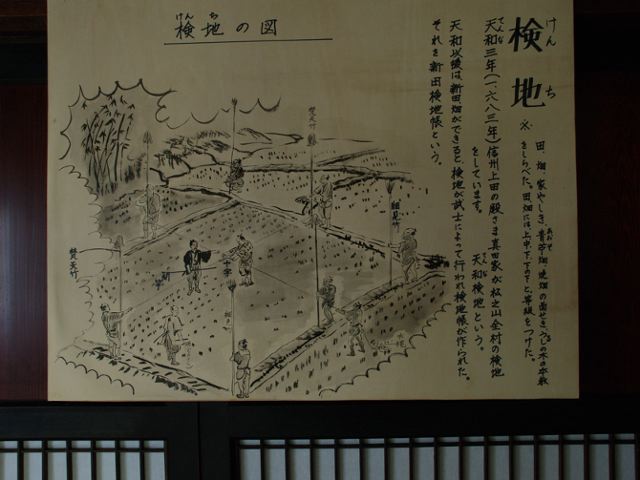 検地
けんち
※ 田、畑、家やしき、青苧畑、焼畑の面せき、うるしの木の本数
あおそ
をしらべた。田畑には上中下、下の下と、等級をつけた。
天和三年(一、六八三年)信州上田の殿さま真田家が松之山全村の検地
てんな
をしています。
天和検地という。
てんな
天和以後は新田畑ができると検地が武士によって行われ検地帳が作られた。
それを新田検地帳という。
検地の図
けんち
梵天竹
細見竹
梵天竹
十字